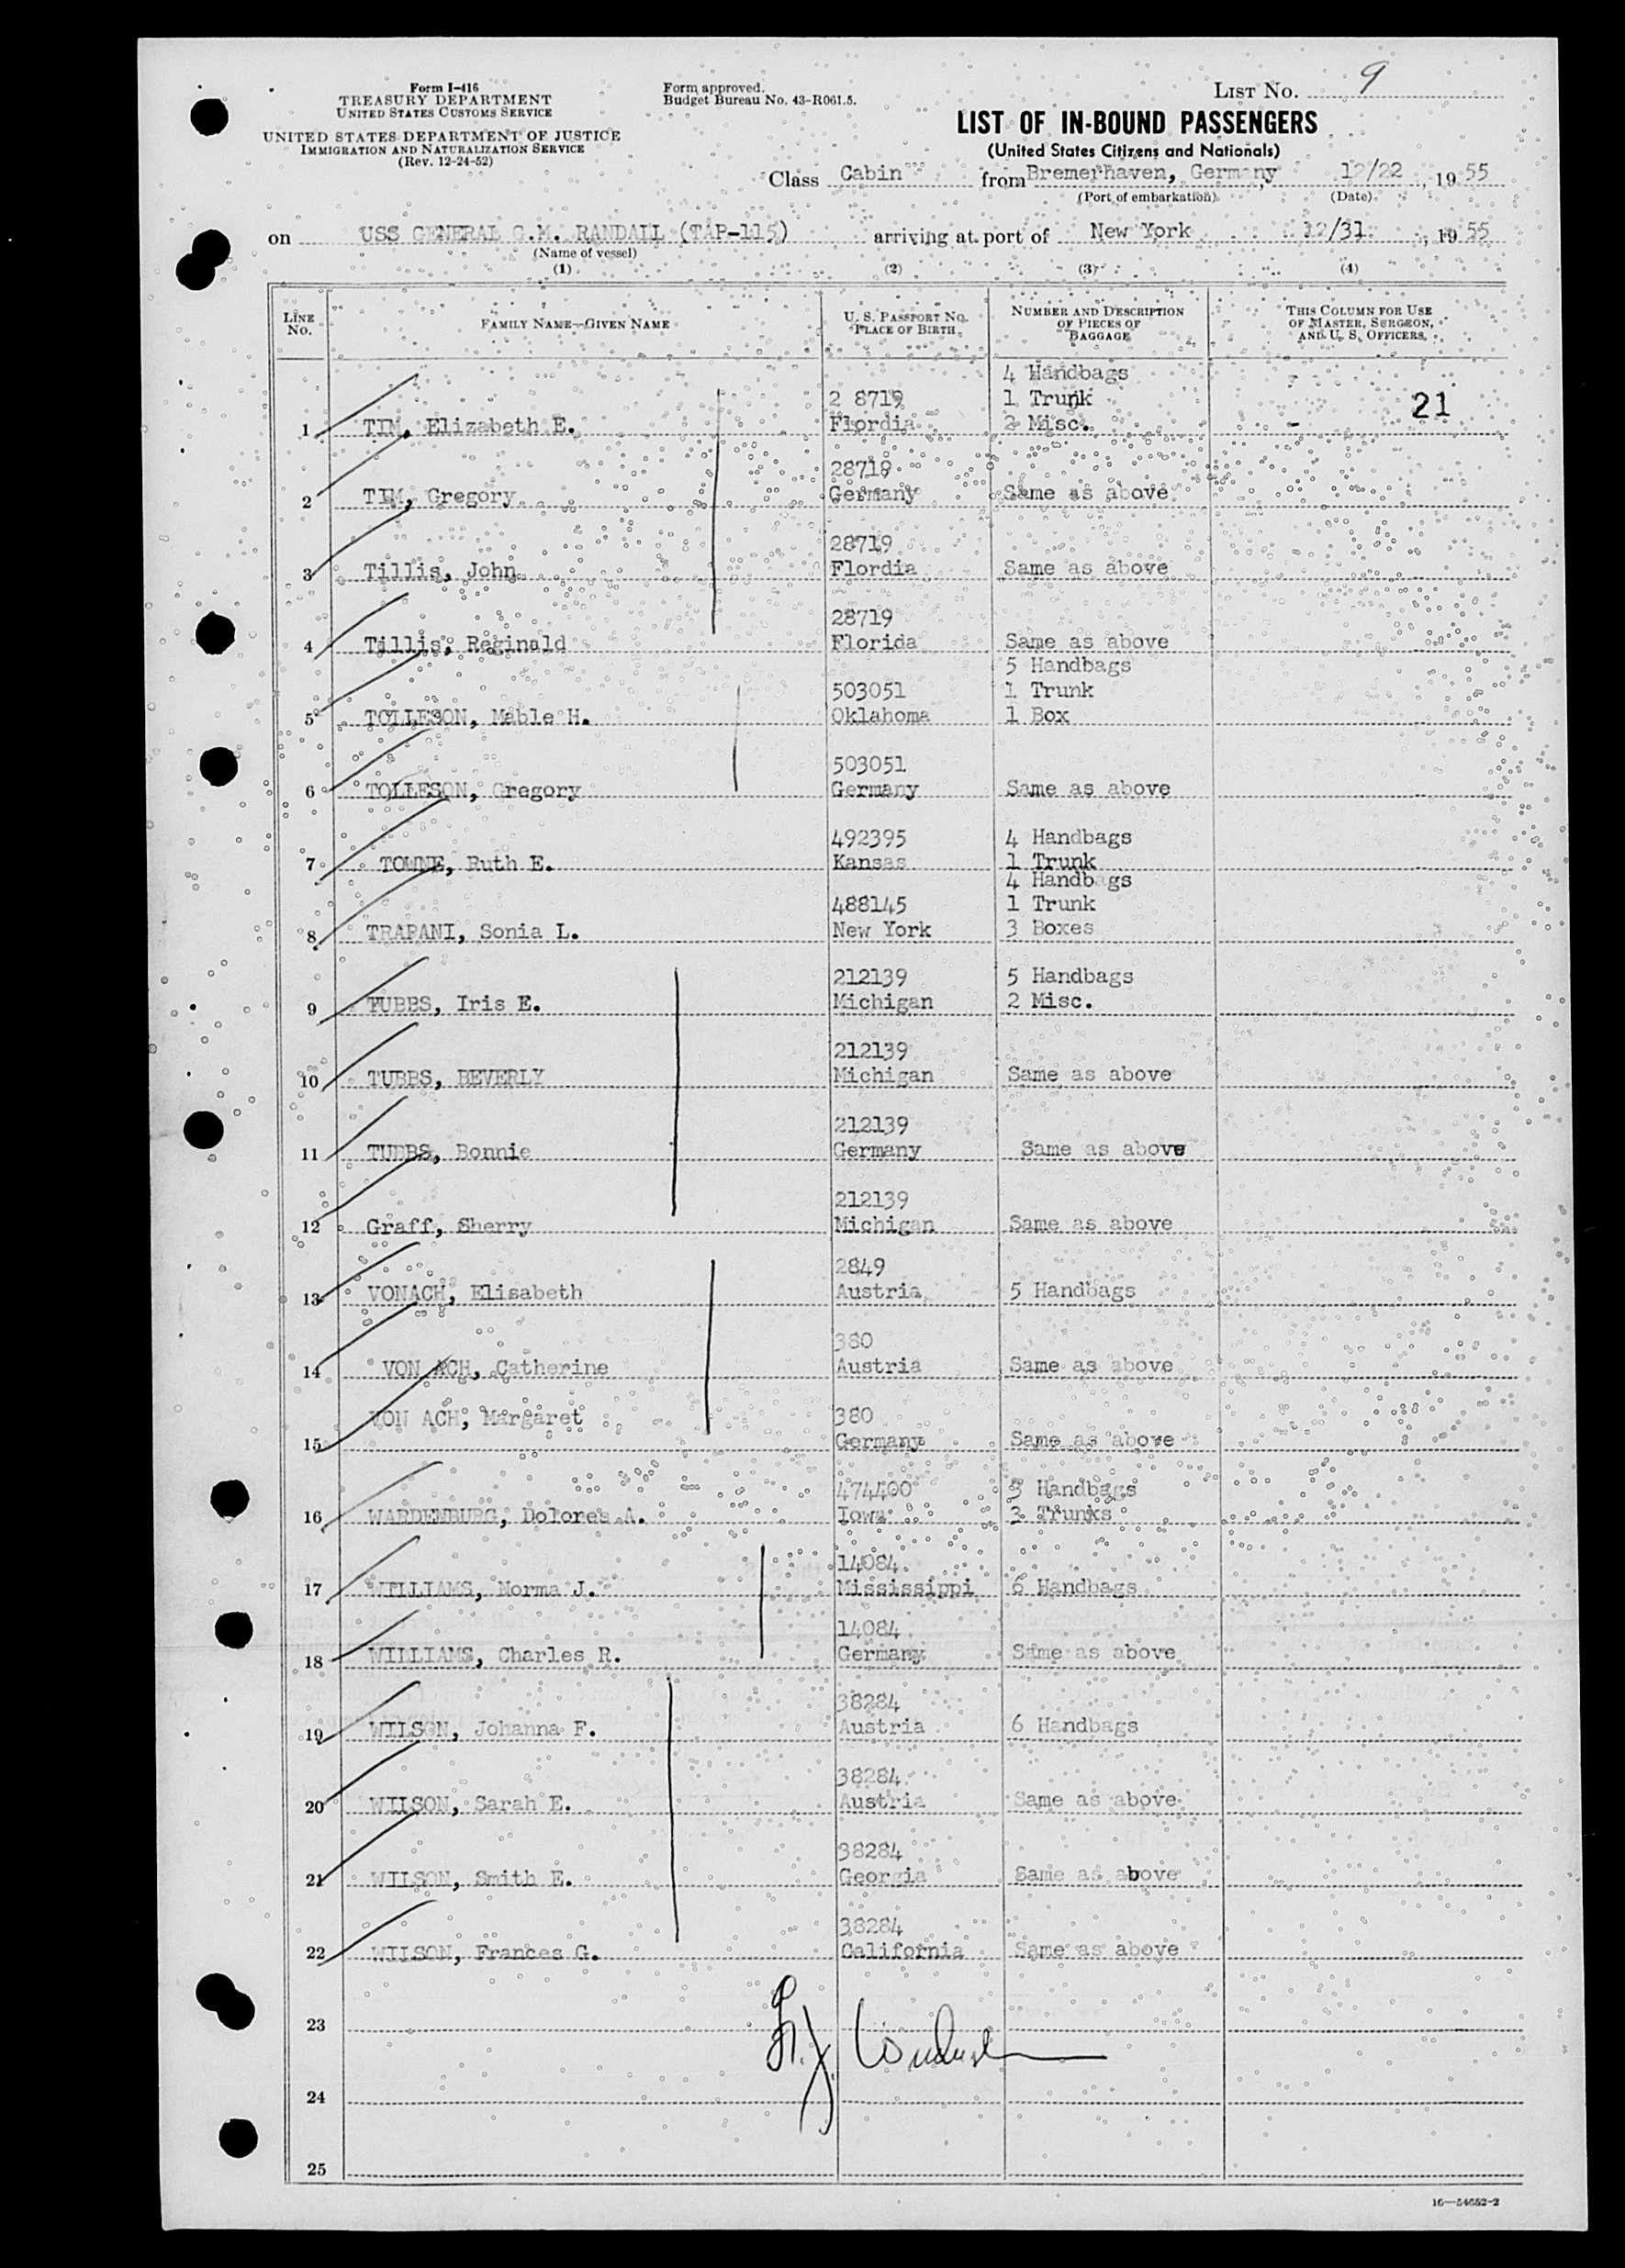 Form I-416
TREASURY DEPARTMENT
UNITED STATES CUSTOMS SERVICE
UNITED STATES DEPARTMENT OF JUSTICE
IMMIGRATION AND NATURALIZATION SERVICE
(Rev. 12-24-52)
Form approved.
Budget Bureau No. 43-R061.5.
LIST NO. 9
LIST OF IN-BOUND PASSENGERS
(United States Citizens and Nationals)
Class Cabin from Bremerhaven, Germany 12/22, 1955
(Port of embarkation) (Date)
on USS GENERAL G.M. RANDALL (TAP-115) arriving at port of New York 12/31, 1955
(Name of vessel)
(1) (2) (3) (4)
LINE NO. FAMILY NAME—GIVEN NAME U. S. PASSPORT NO. PLACE OF BIRTH NUMBER AND DESCRIPTION OF PIECES OF BAGGAGE THIS COLUMN FOR USE OF MASTER, SURGEON, AND U. S. OFFICERS
4 Handbags
2 8719 1 Trunk 21
1 TIM, Elizabeth E. Flordia 2 Misc.
28719
2 TIM, Gregory Germany Same as above
28719
3 Tillis, John Flordia Same as above
28719
4 Tillis, Reginald Florida Same as above
5 Handbags
503051 1 Trunk
5 TOLLESON, Mable H. Oklahoma 1 Box
503051
6 TOLLESON, Gregory Germany Same as above
492395 4 Handbags
7 TOWNE, Ruth E. Kansas 1 Trunk
4 Handbags
488145 1 Trunk
8 TRAPANI, Sonia L. New York 3 Boxes
212139 5 Handbags
9 TUBBS, Iris E. Michigan 2 Misc.
212139
10 TUBBS, BEVERLY Michigan Same as above
212139
11 TUBBS, Bonnie Germany Same as above
212139
12 Graff, Sherry Michigan Same as above
2849
13 VONACH, Elisabeth Austria 5 Handbags
380
14 VON ACH, Catherine Austria Same as above
VON ACH, Margaret 380
15 Germany Same as above
474400 3 Handbags
16 WARDENBURG, Dolores A. Iowa 3 Trunks
14084
17 WILLIAMS, Norma J. Mississippi 6 Handbags
14084
18 WILLIAMS, Charles R. Germany Same as above
38284
19 WILSON, Johanna F. Austria 6 Handbags
38284
20 WILSON, Sarah E. Austria Same as above
38284
21 WILSON, Smith E. Georgia Same as above
38284
22 WILSON, Frances G. California Same as above
23
24
25
16—54652-2